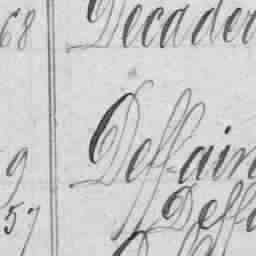 68 Decader
9 Deffain
57 Deffa